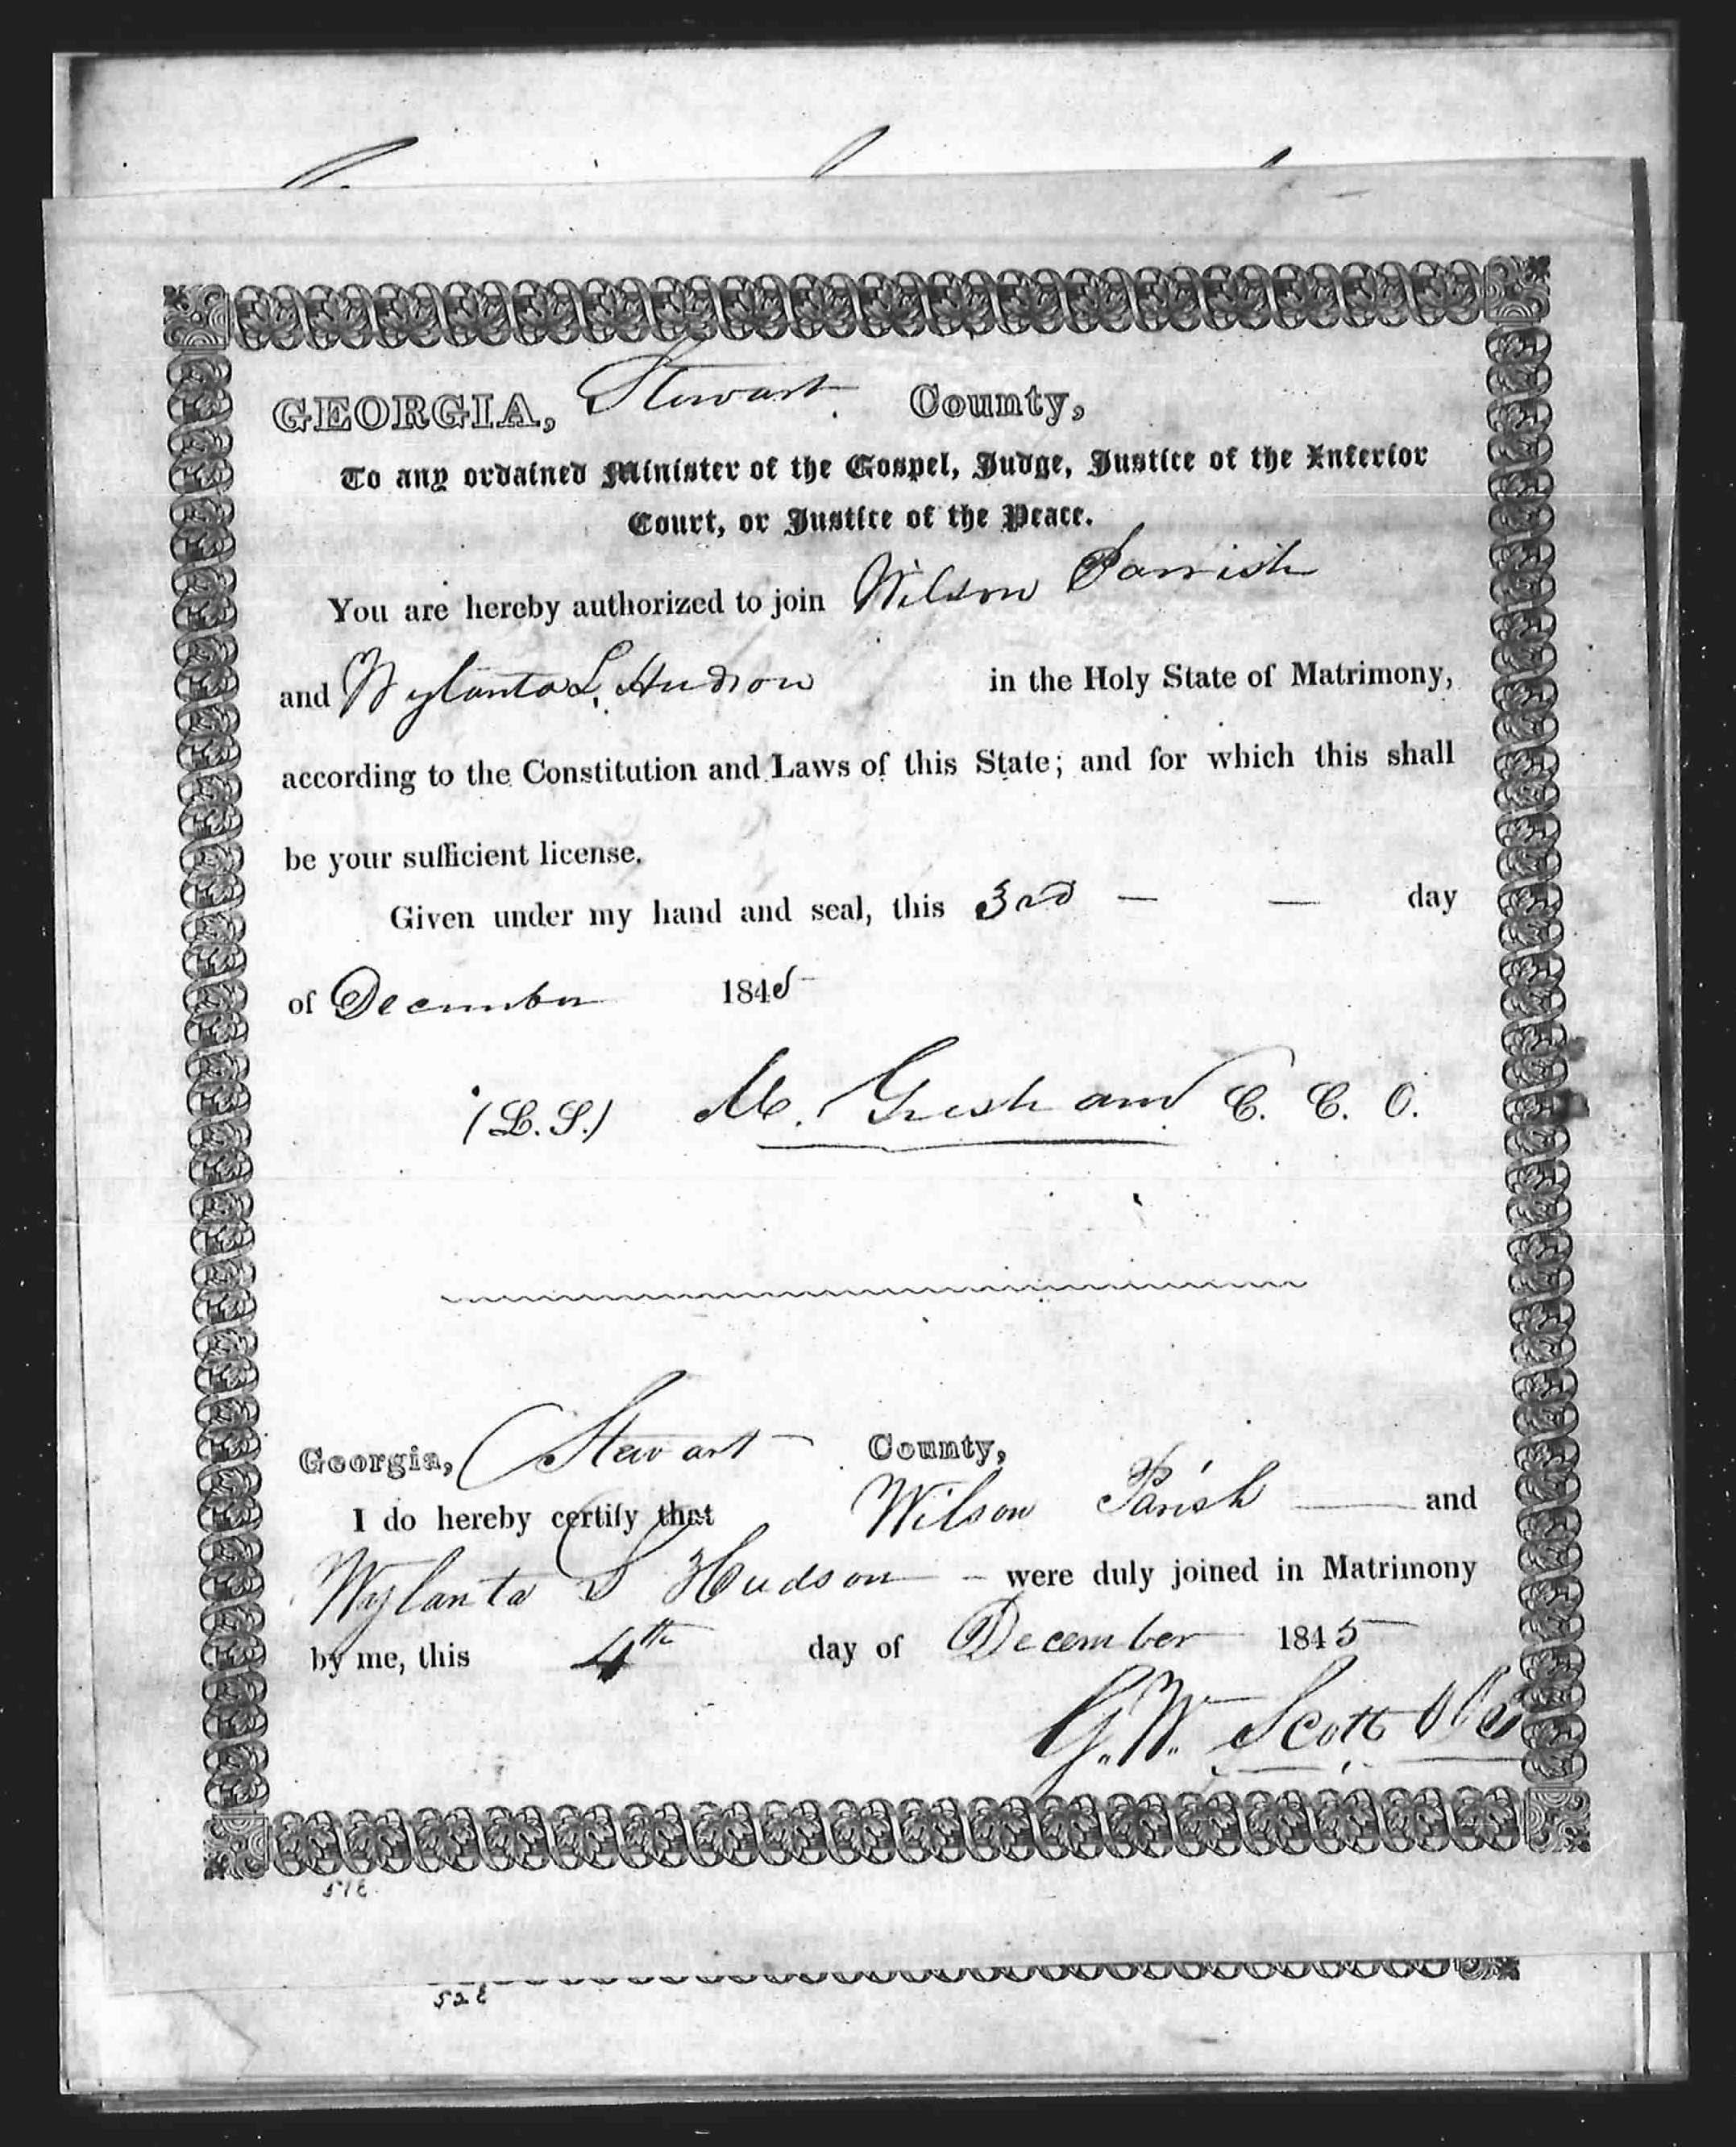 GEORGIA, Stewart County,
To any ordained Minister of the Gospel, Judge, Justice of the Inferior
Court, or Justice of the Peace.
You are hereby authorized to join Wilson Parrish
and Wylanta L. Hudson in the Holy State of Matrimony,
according to the Constitution and Laws of this State; and for which this shall
be your sufficient license.
Given under my hand and seal, this 3rd — — day
of December 1845
(L.S.) M. Gresham C. C. O.
Georgia, Stewart County,
I do hereby certify that Wilson Parish — and
Wylanta S Hudson — were duly joined in Matrimony
by me, this 4th day of December 1845
G. W. Scott